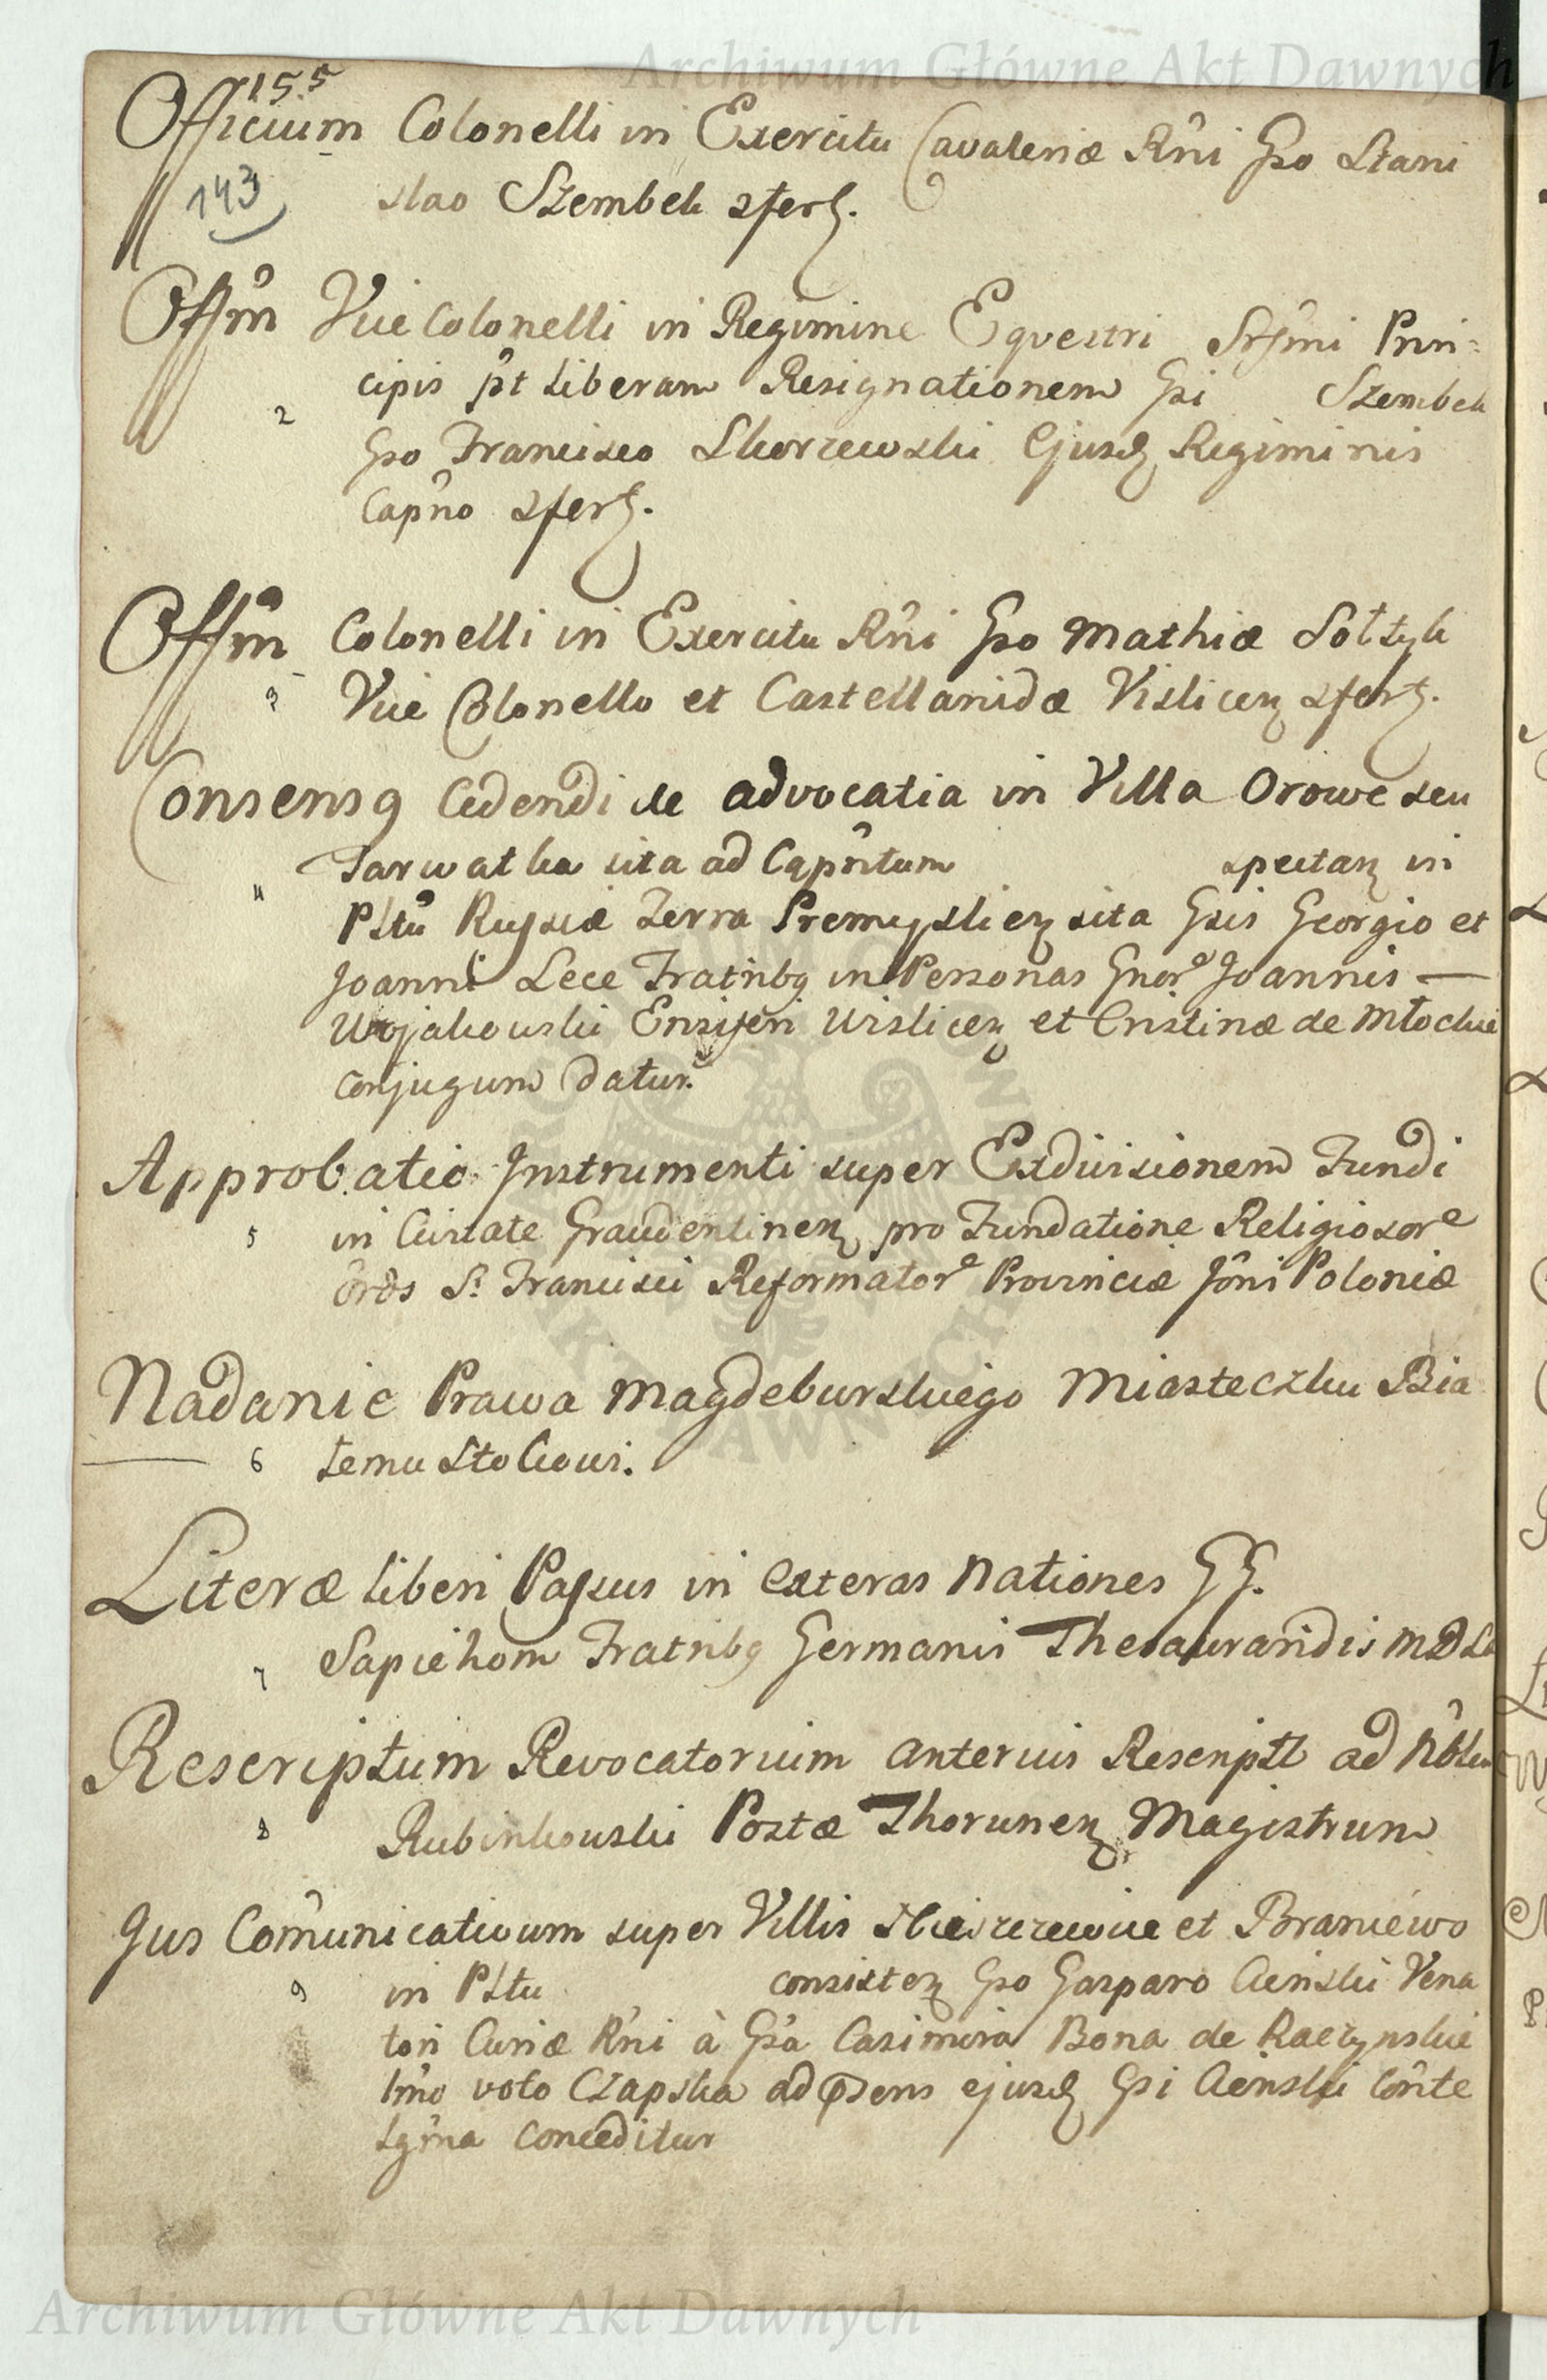 Archiwum Główne Akt Dawnych
155
Officium Colonelli in Exercitu Cavaleriæ Rñi Gso Stani
143
slao Szembek xfert.
Offm̃ Vice Colonelli in Regimine Eqvestri Srſmi Prin-
cipis pt liberam Resignationem Gsi Szembek
2
Gso Francisco Skorzewski Ejusd Regiminis
Capño xfert.
Offm̃ Colonelli in Exercitu Rñi Gso Mathiæ Sołtyk
3 Vice Colonello et Castellanidæ Vislicen xfert.
Consens9 Cedendi de advocatia in Villa Orowe seu
Tarwatka sita ad Capñtum spectan in
4
Pltũ Rusſiæ Terra Premysſlien sita Gsis Georgio et
Joanni Lece Fratrib9 in Personas Gnor Joannis —
Wojakowski Ensiferi Wislicen et Cristinæ de Młockie
conjugum datur.
Approbatio Instrumenti super Exdivisionem Fundi
5 in Civitate Graudentinen pro Fundatione Religiosor
Ords S. Francisci Reformator Provinciæ Joñi Poloniæ
Nadanie Prawa Magdeburskiego Miasteczku Bia
6 łemu Stokowi.
Literæ liberi Paſsus in exteras Nationes GG.
7 Sapiehom Fratrib9 Germanis Thesaurandis MDL
Rescriptum Revocatorium anterius Rescriptt ad Nblem
8 Rubinkowski Postæ Thorunen Magistrum
Jus Com̃unicativum super Villis et Braniewo
9 in Pltu consisten Gso Gasparo Cieński Vena
tori Curiæ Rñi à Gsa Casimira Bona de Raczynskie
1mo voto Czapska ad psens ejusd Gsi Cieński Conte
Lgma conceditur
Archiwum Główne Akt Dawnych